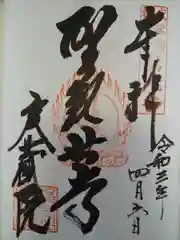 奉拝
令和三年
四月六日
聖観世音
大蔵院